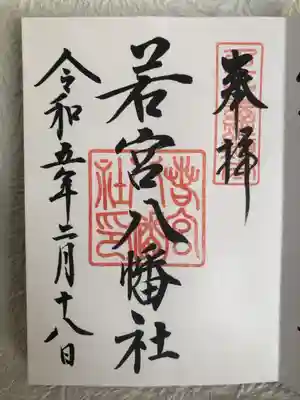 奉拝
若宮八幡社
令和五年二月十八日